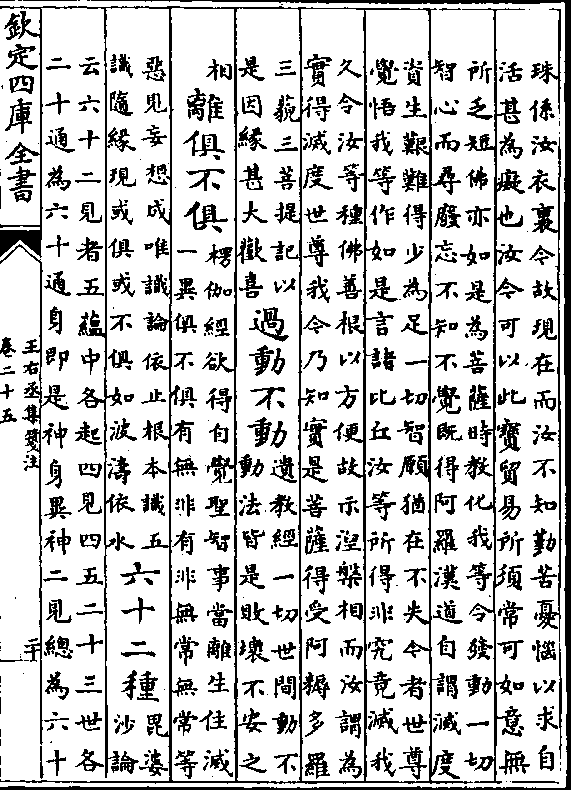 珠係汝衣裏今故現在而汝不知勤苦憂惱以求自
活甚為癡也汝今可以此寶貿易所須常可如意無
所乏短佛亦如是為菩薩時教化我等令發動一切
智心而尋廢忘不知不覺既得阿羅漢道自謂滅度
資生艱難得少為足一切智願猶在不失今者世尊
覺悟我等作如是言諸比丘汝等所得非究竟滅我
久令汝等種佛善根以方便故示湼槃相而汝謂為
實得滅度世尊我今乃知實是菩薩得受阿耨多羅
三藐三菩提記以
是因緣甚大歡喜
過動不動
遺教經一切世間動不
動法皆是敗壞不安之
相
離俱不俱
楞伽經欲得自覺聖智事當離生住滅
一異俱不俱有無非有非無常無常等
惡見妄想成唯識論依止根本識五
識隨緣現或俱或不俱如波濤依水
六十二種
毘婆
沙論
云六十二見者五蘊中各起四見四五二十三世各
二十通為六十通身即是神身異神二見總為六十
欽定四庫全書
王右丞集箋注
卷二十五
二十